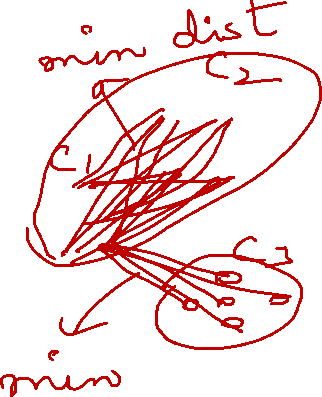 min dist
C2
C1
C3
min